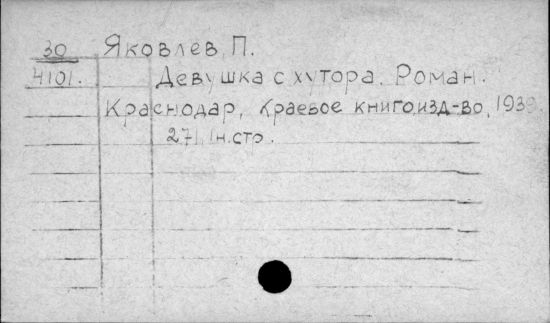 30 Яковлев, П.
4101. Девушка с хутора. Роман.
Краснодар, Краевое книгоизд-во, 1939.
271, 1н.стр.